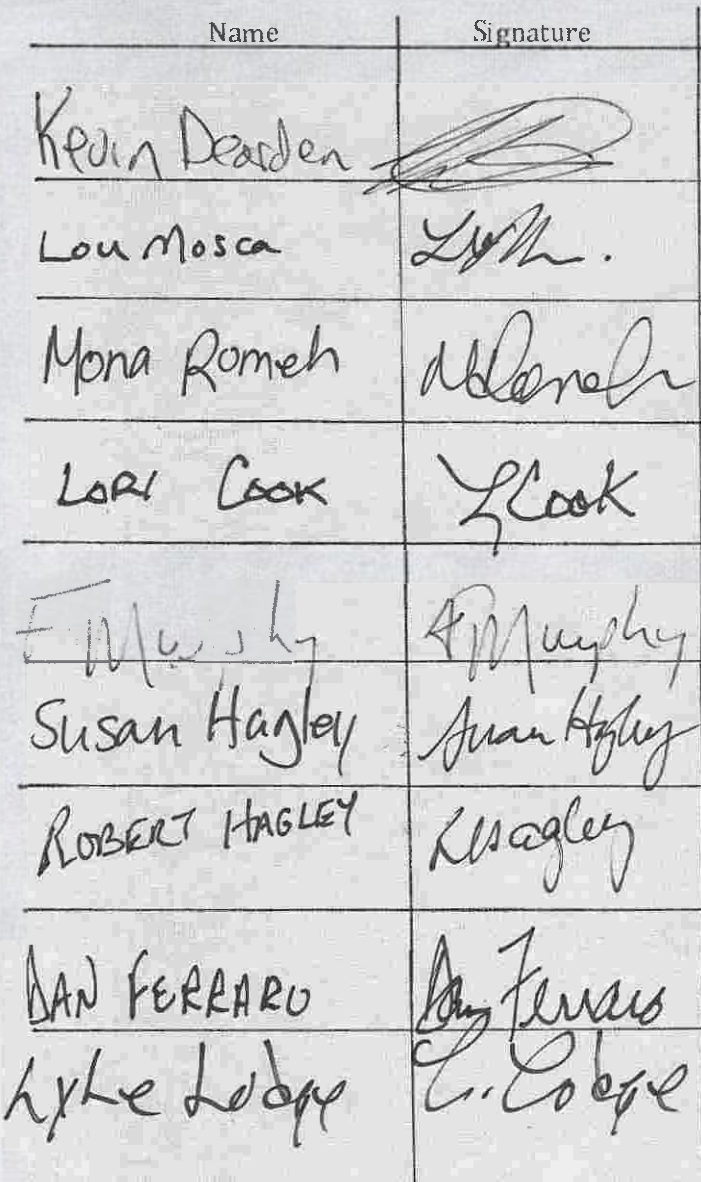 Name Signature
Kevin Dearden
Lou Mosca
Mona Romeh
LORI COOK L Cook
F Murphy F Murphy
Susan Hagley Susan Hagley
ROBERT HAGLEY RHagley
DAN FERRARO Dan Ferraro
Lyle Lodge L. Lodge